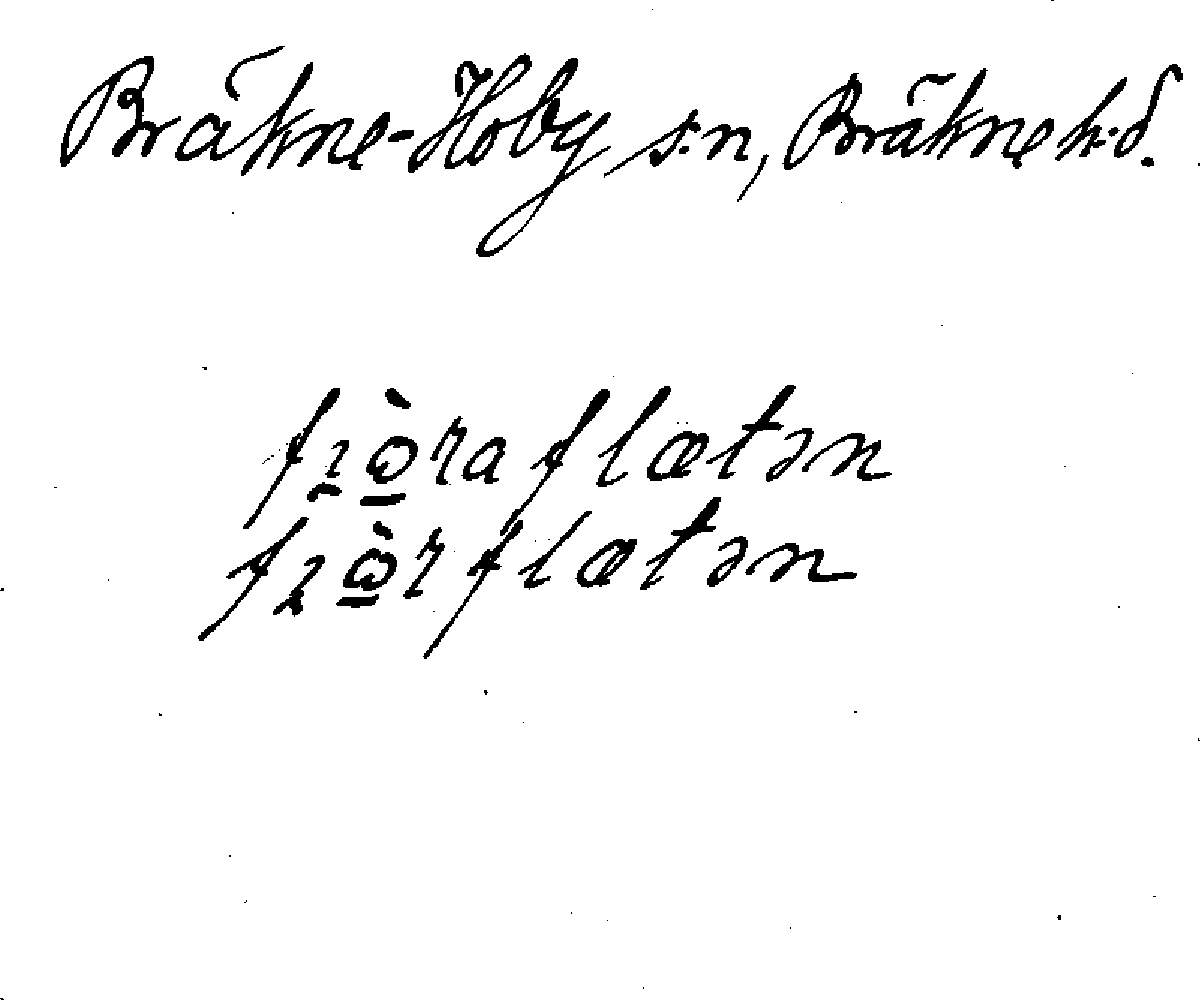 Bräkne-Hoby s:n, Bräkne h:d.
fɪ̯ɷ̠̀raflætən
fɪ̯ɷ̠̀rflætən